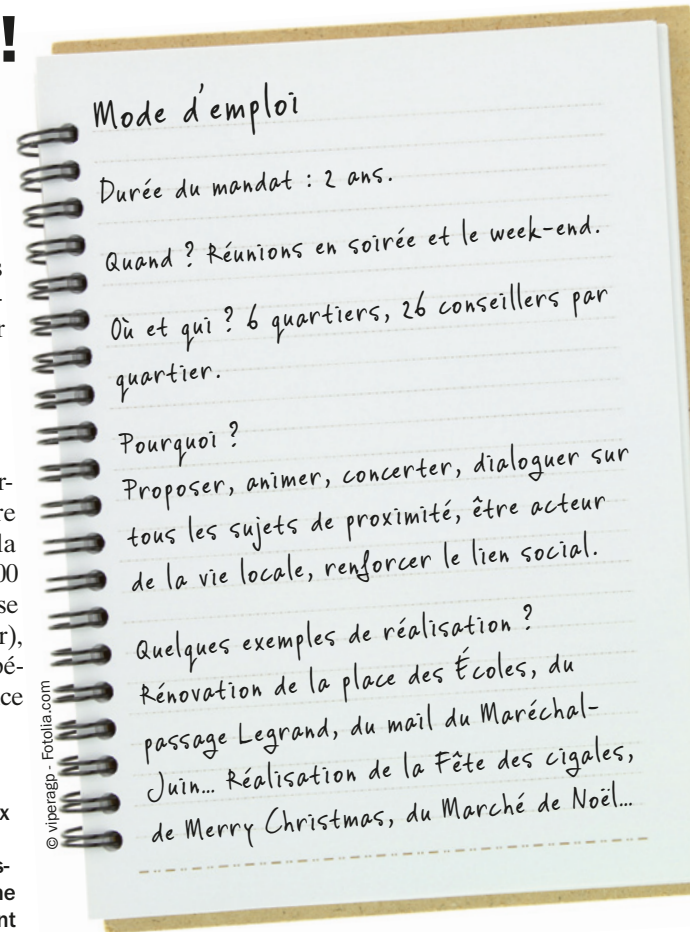 !
s
-
r
r-
re
la
00
se
r),
pé-
ce
x
s-
ne
nt
© viperagp - Fotolia.com
Mode d'emploi
Durée du mandat : 2 ans.
Quand ? Réunions en soirée et le week-end.
Où et qui ? 6 quartiers, 26 conseillers par
quartier.
Pourquoi ?
Proposer, animer, concerter, dialoguer sur
tous les sujets de proximité, être acteur
de la vie locale, renforcer le lien social.
Quelques exemples de réalisation ?
Rénovation de la place des Écoles, du
passage Legrand, du mail du Maréchal-
Juin... Réalisation de la Fête des cigales,
de Merry Christmas, du Marché de Noël...